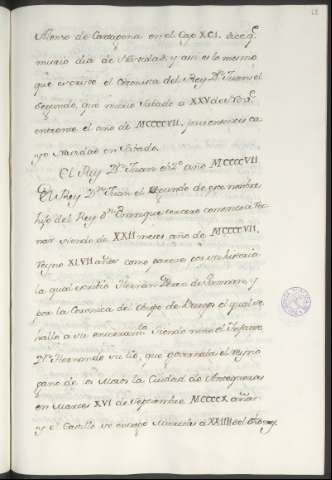 Alonso de Cartagena en el Cap. XCI. dice q.^e
murio dia de Navidad, y asi es lo mesmo
que escrive el Coronica del Rey D.^n Juan el
segundo, que murio Sabado a XXV de
entrante el año de MCCCCVII, por entonces ca
yo Navidad en Sabado.
El Rey D.^n Juan el 2.^o año MCCCCVII
El Rey D.^n Juan el segundo de este nombre
hijo del Rey D.^n Enrrique tercero comenzo a rey
nar siendo de XXII meses año de MCCCCVII,
reyno XLVII años como parece por su historia
la qual scrivio Hernan Perez de Guzman, y
por la Coronica del Obispo de Burgos el qual se
hallo a su enterram.^to siendo niño el Infante
D.^n Hernando su tio, que governaba el reyno
gano de los Moros la Ciudad de Antequera
en Martes XVI de Septiembre MCCCCX años
y el Castillo se entrego Miercoles a XXIIII del